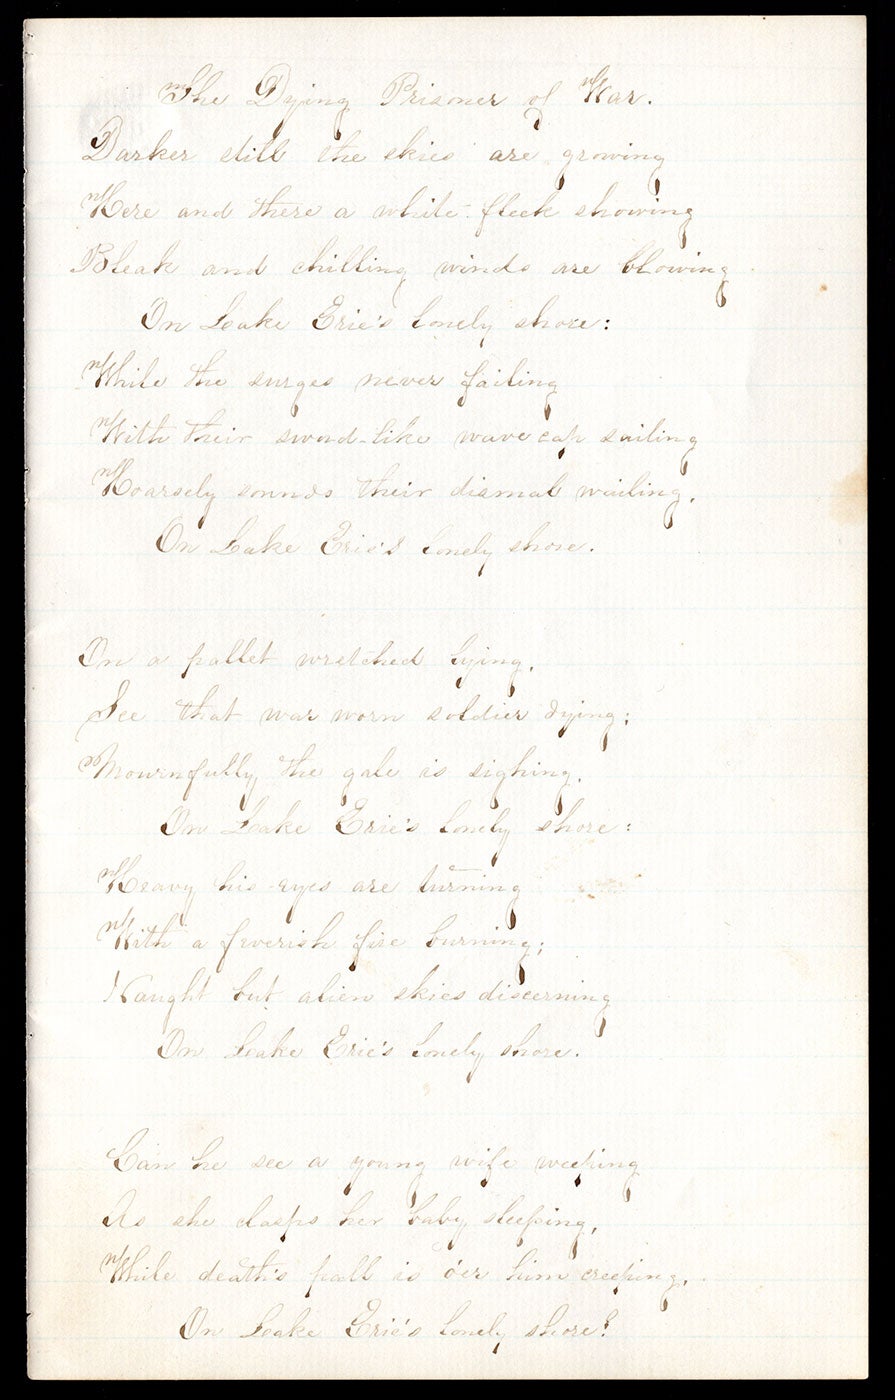 The Dying Prisoner of War.
Darker still the skies are growing
Here and there a white fleck showing
Bleak and chilling winds are blowing
On Lake Erie's lonely shore:
While the surges never failing
With their sword-like wave cap sailing
Hoarsely sounds their dismal wailing,
On Lake Erie's lonely shore.
On a pallet wretched lying,
See that war worn soldier dying;
Mournfully the gale is sighing,
On Lake Erie's lonely shore:
Heavy his eyes are turning
With a feverish fire burning;
Naught but alien skies discerning
On Lake Erie's lonely shore.
Can he see a young wife weeping
As she clasps her baby sleeping,
While death's pall is o'er him creeping,
On Lake Erie's lonely shore?